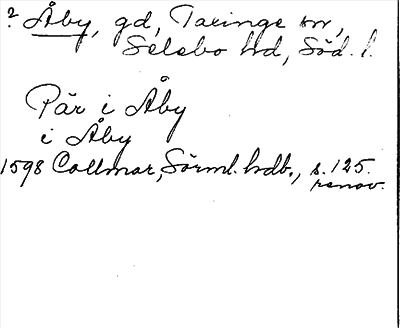 ? Åby, gd, Taringe sn,
Selebo hd, Söd. l.
Pär i Åby
i Åby
1598 Collmar, Sörml. hdb., s. 125.
renov.